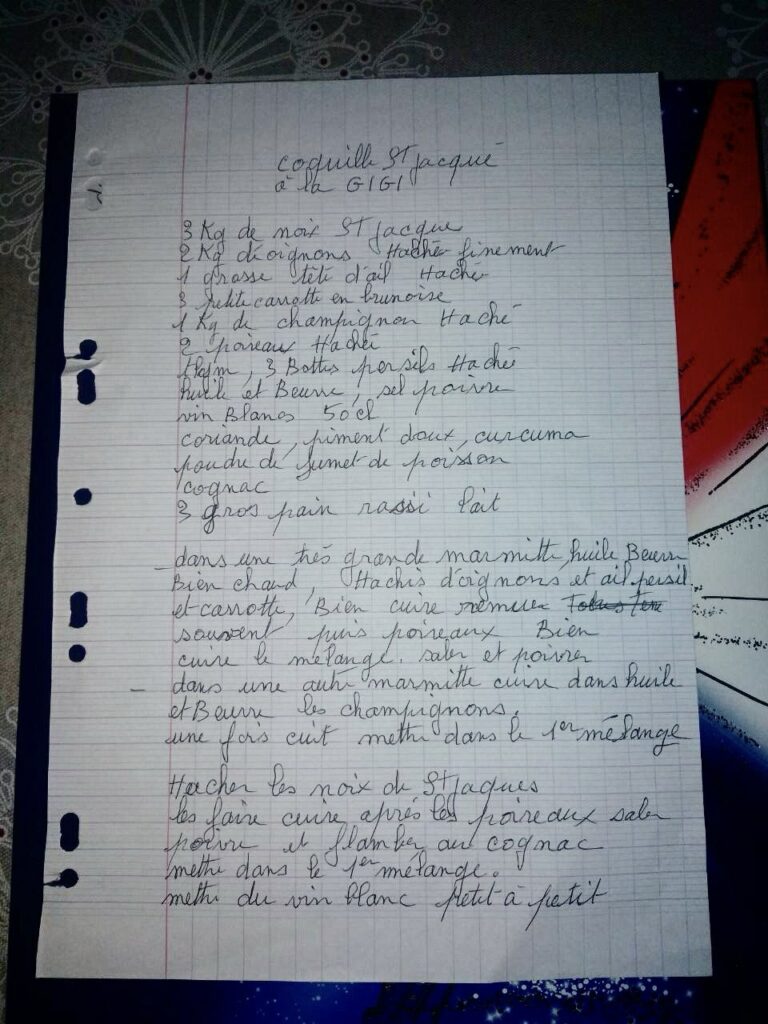 coquille St jacque
à la GIGI
3 Kg de noix St jacque
2 Kg d'oignons Haché finement
1 grosse tête d'ail Haché
3 petite carrotte en brunoise
1 Kg de champignon Haché
2 poireaux Haché
thym, 3 Bottes persils Haché
huile et Beurre, sel poivre
vin Blancs 50 cl
coriande, piment doux, curcuma
poudre de fumet de poisson
cognac
3 gros pain rassi lait
_ dans une très grande marmitte, huile Beurre
Bien chaud, Hachis d'oignons et ail persil
et carrotte, Bien cuire remuer
souvent puis poireaux Bien
cuire le mélange. saler et poivrer
_ dans une autre marmitte cuire dans huile
et Beurre les champignons.
une fois cuit mettre dans le 1er mélange
Hacher les noix de St jaques
les faire cuire après les poireaux saler
poivre et flamber au cognac
mettre dans le 1er mélange.
mettre du vin blanc petit à petit